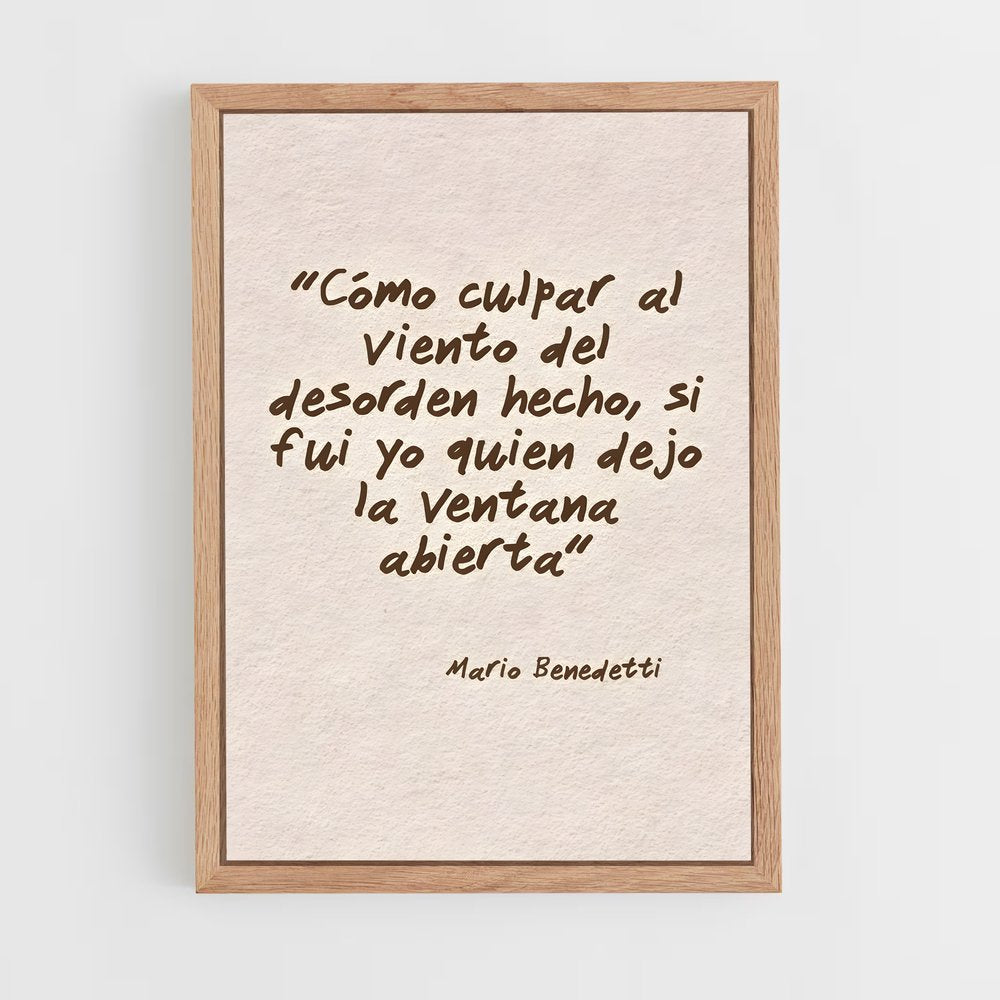 "Cómo culpar al
viento del
desorden hecho, si
fui yo quien dejo
la ventana
abierta"
Mario Benedetti